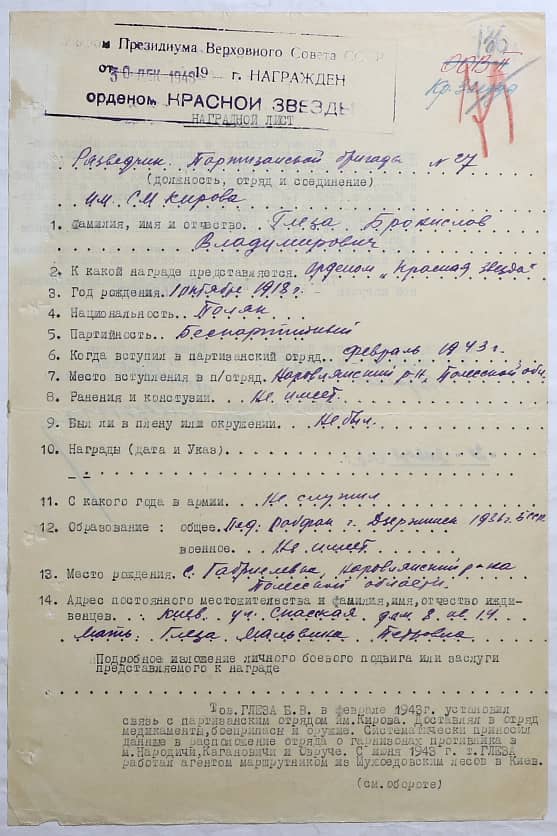 Президиума Верховного Совета СССР
от 30 ДЕК 1943 19 г. НАГРАЖДЕН
орденом КРАСНОЙ ЗВЕЗДЫ
НАГРАДНОЙ ЛИСТ
Разведчик Партизанской бригады №27
(должность, отряд и соединение)
им. СМ Кирова
1. Фамилия, имя и отчество. Глеза Бронислов
Владимирович
2. К какой награде представляется. Орденом "Красная звезда"
3. Год рождения. 1 октября 1918 г.
4. Национальность. Поляк
5. Партийность. Беспартийный
6. Когда вступил в партизанский отряд. февраль 1943 г.
7. Место вступления в п/отряд. Наровлянский р-н, Полесской обл.
8. Ранения и констузии. Не имеет
9. Был ли в плену или окружении. Не был.
10. Награды (дата и Указ).
11. С какого года в армии. Не служил
12. Образование : общее. Пед. Рабфак г. Дзержинск 1936 г. Бсср
военное. Не имеет
13. Место рождения. с. Габрилевка, Наровлянский р-на
Полесской области.
14. Адрес постоянного местожительства и фамилия,имя,отчество ижди-
венцев. Киев ул. Спасская дом 8 кв. 14
Мать: Глеза Мальвина Петровна
Подробное изложение личного боевого подвига или заслуги
представляемого к награде
Тов.ГЛЕЗА Б.В. в феврале 1943г. установил
связь с партизанским отрядом им.Кирова. Доставлял в отряд
медикаменты,боеприпасы и оружие. Систематически приносил
данные в расположение отряда о гарнизонах противника в
м.Народичи,Каганович и Овруче. С июня 1943 г. т.ГЛЕЗА
работал агентом маршрутником из Мухоедовских лесов в Киев.
(см.обороте)